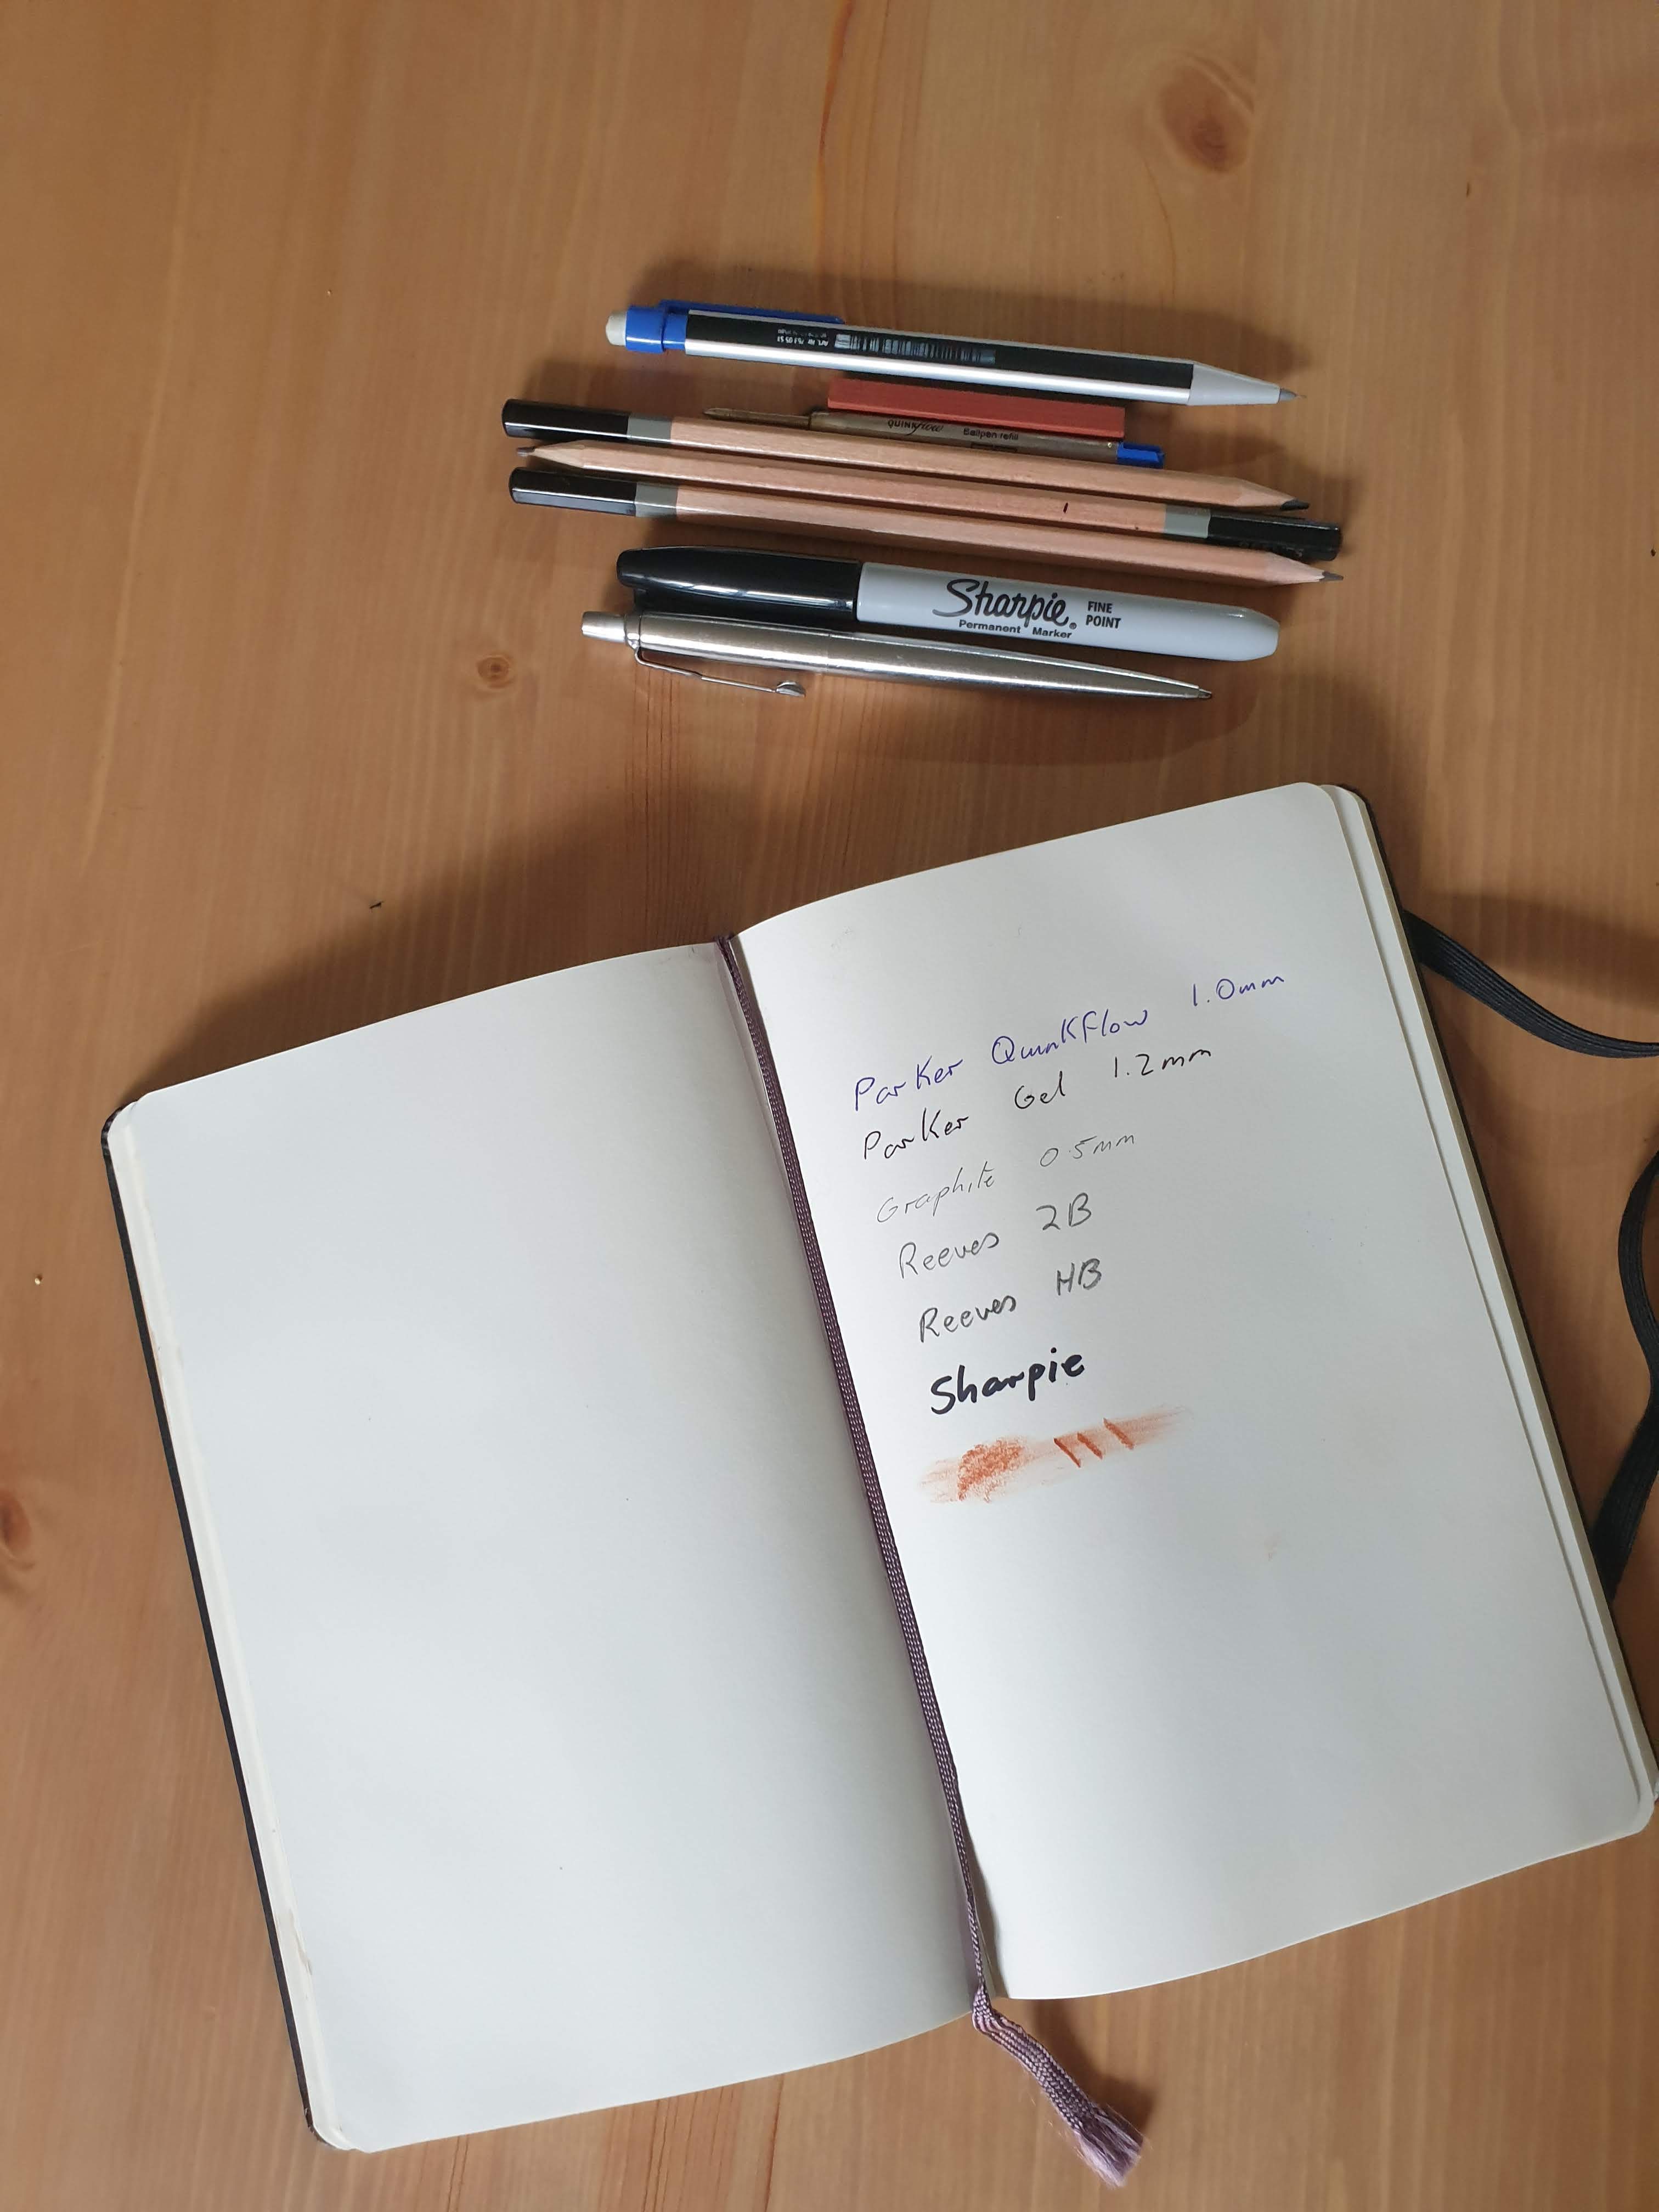 QUINKflow Ballpen refill
Sharpie® FINE POINT
Permanent Marker
Parker QuinkFlow 1.0mm
Parker Gel 1.2mm
Graphite 0.5mm
Reeves 2B
Reeves HB
Sharpie